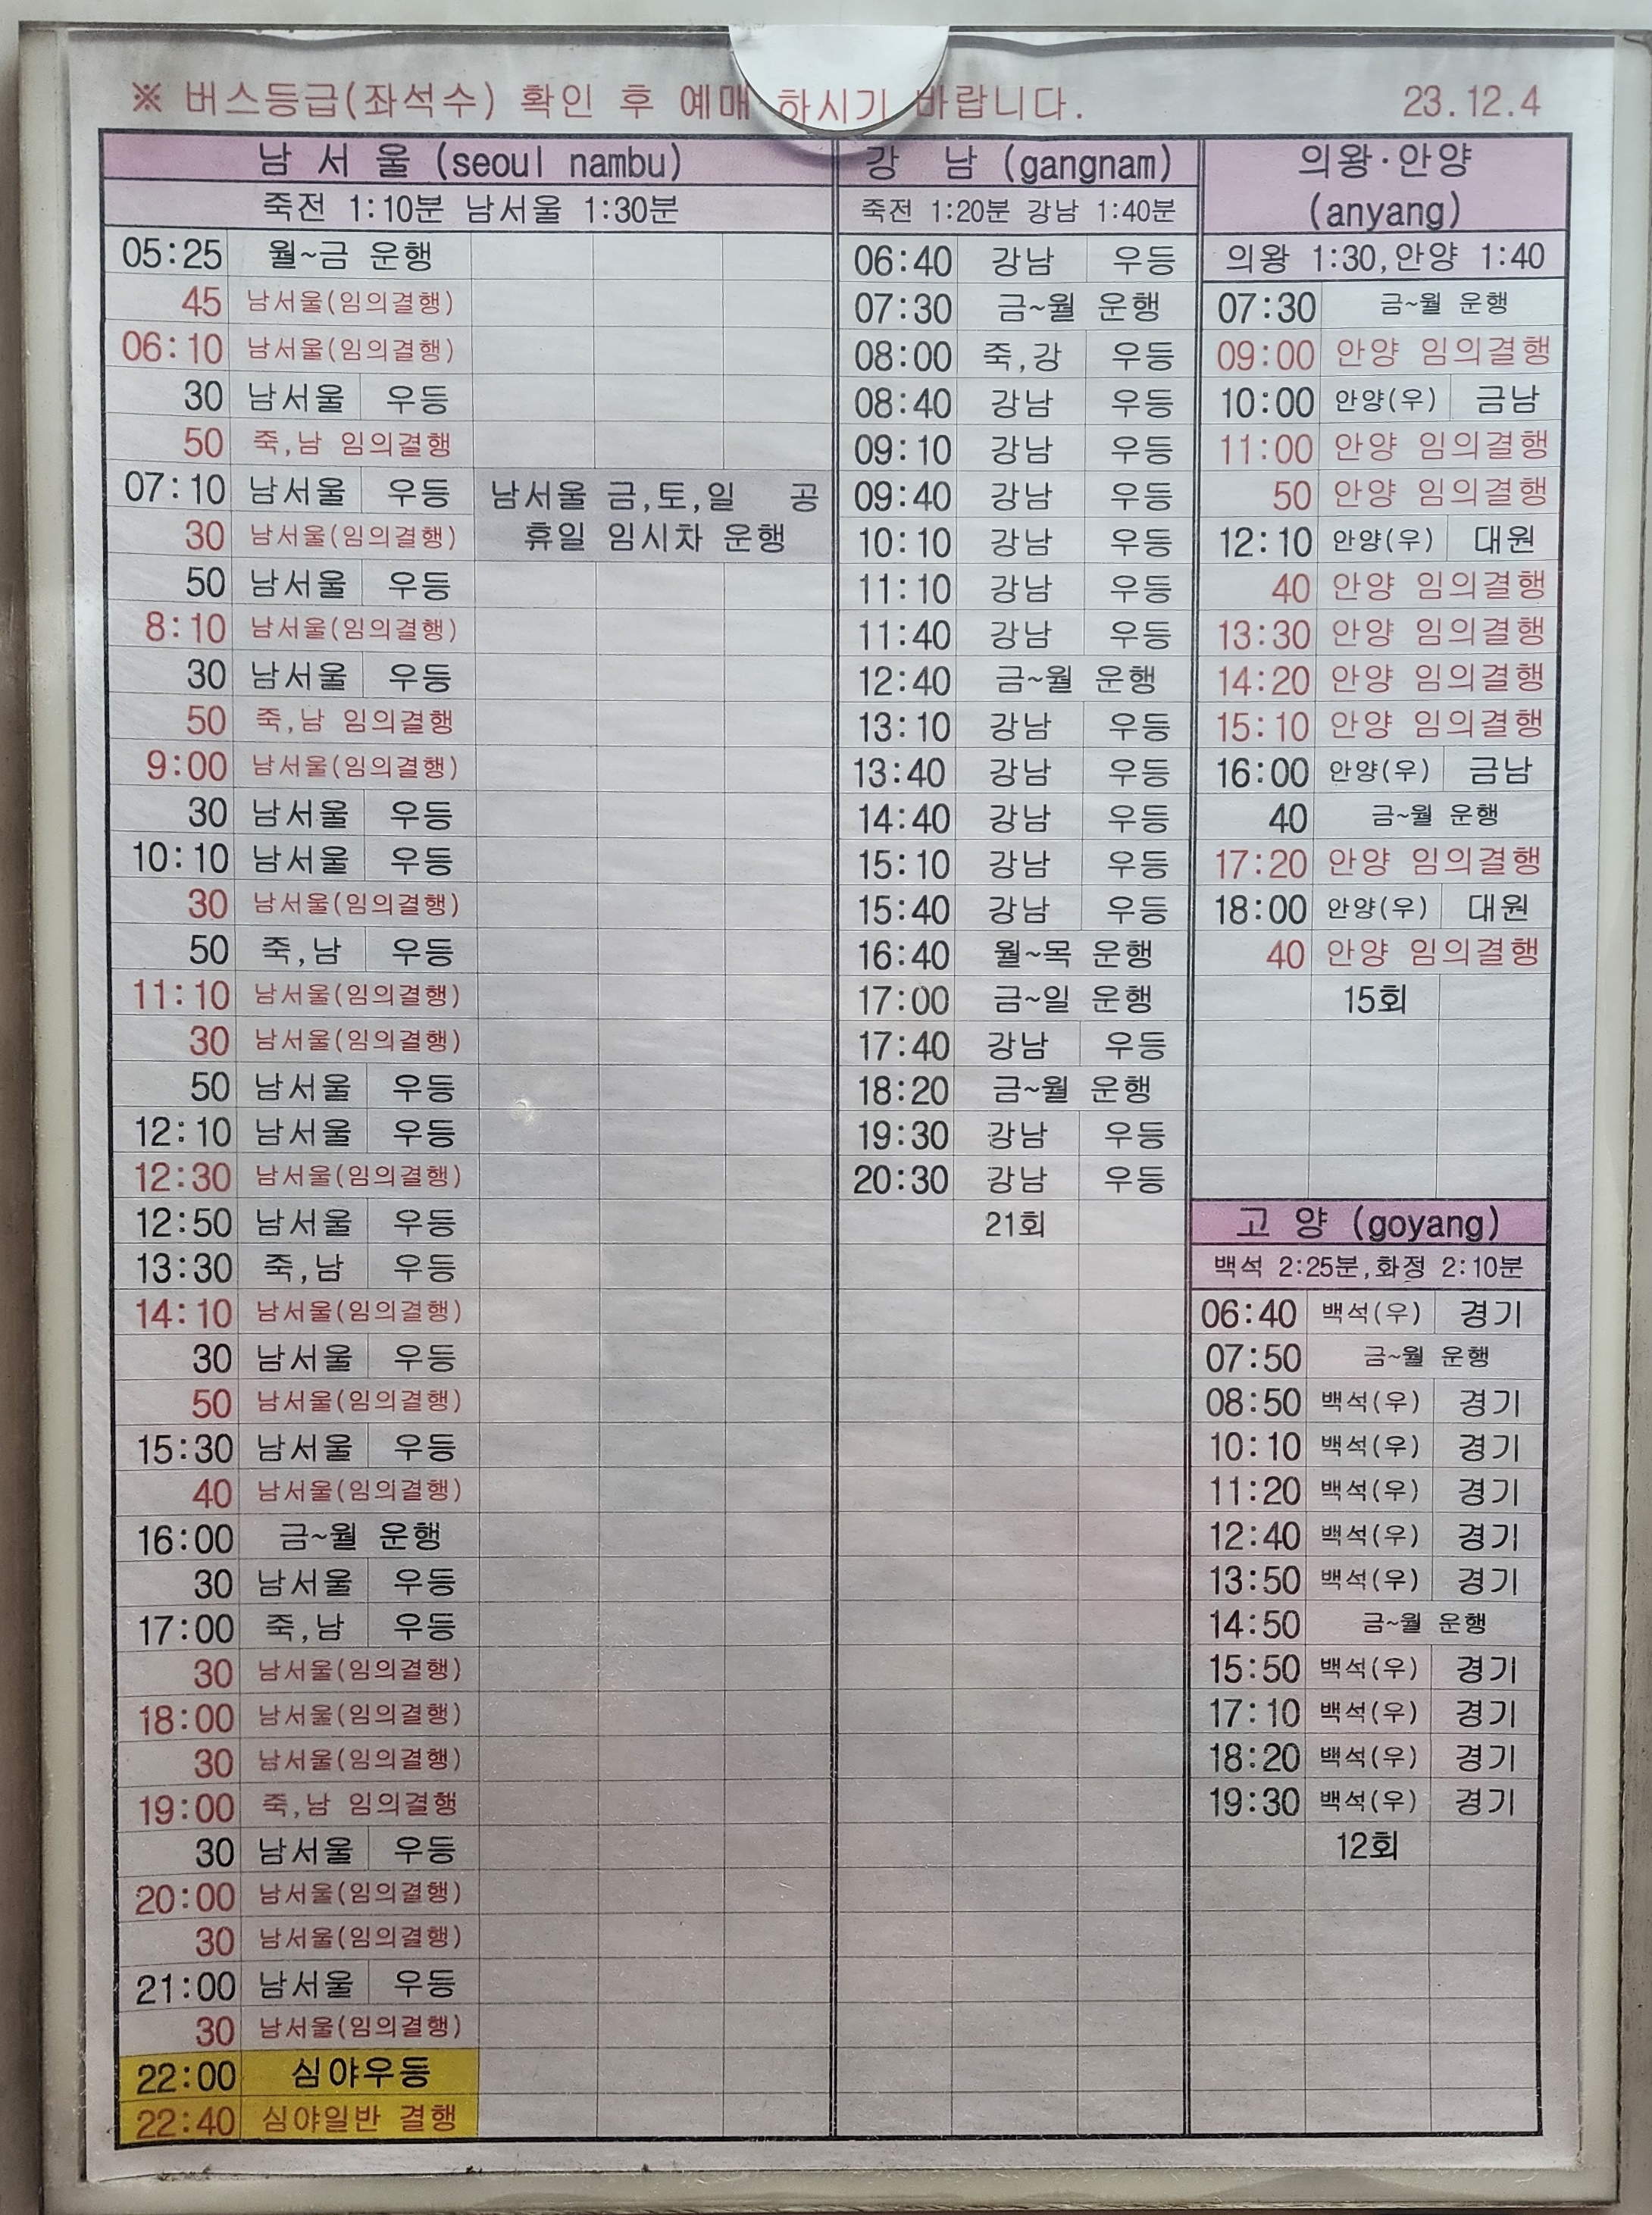 ※ 버스등급(좌석수) 확인 후 예매 하시기 바랍니다. 23.12.4
남 서 울 (seoul nambu)
죽전 1:10분 남서울 1:30분
05:25 월~금 운행
45 남서울(임의결행)
06:10 남서울(임의결행)
30 남서울 우등
50 죽,남 임의결행
07:10 남서울 우등
30 남서울(임의결행)
50 남서울 우등
8:10 남서울(임의결행)
30 남서울 우등
50 죽,남 임의결행
9:00 남서울(임의결행)
30 남서울 우등
10:10 남서울 우등
30 남서울(임의결행)
50 죽,남 우등
11:10 남서울(임의결행)
30 남서울(임의결행)
50 남서울 우등
12:10 남서울 우등
12:30 남서울(임의결행)
12:50 남서울 우등
13:30 죽,남 우등
14:10 남서울(임의결행)
30 남서울 우등
50 남서울(임의결행)
15:30 남서울 우등
40 남서울(임의결행)
16:00 금~월 운행
30 남서울 우등
17:00 죽,남 우등
30 남서울(임의결행)
18:00 남서울(임의결행)
30 남서울(임의결행)
19:00 죽,남 임의결행
30 남서울 우등
20:00 남서울(임의결행)
30 남서울(임의결행)
21:00 남서울 우등
30 남서울(임의결행)
22:00 심야우등
22:40 심야일반 결행
남서울 금,토,일 공
휴일 임시차 운행
강 남 (gangnam)
죽전 1:20분 강남 1:40분
06:40 강남 우등
07:30 금~월 운행
08:00 죽,강 우등
08:40 강남 우등
09:10 강남 우등
09:40 강남 우등
10:10 강남 우등
11:10 강남 우등
11:40 강남 우등
12:40 금~월 운행
13:10 강남 우등
13:40 강남 우등
14:40 강남 우등
15:10 강남 우등
15:40 강남 우등
16:40 월~목 운행
17:00 금~일 운행
17:40 강남 우등
18:20 금~월 운행
19:30 강남 우등
20:30 강남 우등
21회
의왕·안양
(anyang)
의왕 1:30,안양 1:40
07:30 금~월 운행
09:00 안양 임의결행
10:00 안양(우) 금남
11:00 안양 임의결행
50 안양 임의결행
12:10 안양(우) 대원
40 안양 임의결행
13:30 안양 임의결행
14:20 안양 임의결행
15:10 안양 임의결행
16:00 안양(우) 금남
40 금~월 운행
17:20 안양 임의결행
18:00 안양(우) 대원
40 안양 임의결행
15회
고 양 (goyang)
백석 2:25분,화정 2:10분
06:40 백석(우) 경기
07:50 금~월 운행
08:50 백석(우) 경기
10:10 백석(우) 경기
11:20 백석(우) 경기
12:40 백석(우) 경기
13:50 백석(우) 경기
14:50 금~월 운행
15:50 백석(우) 경기
17:10 백석(우) 경기
18:20 백석(우) 경기
19:30 백석(우) 경기
12회